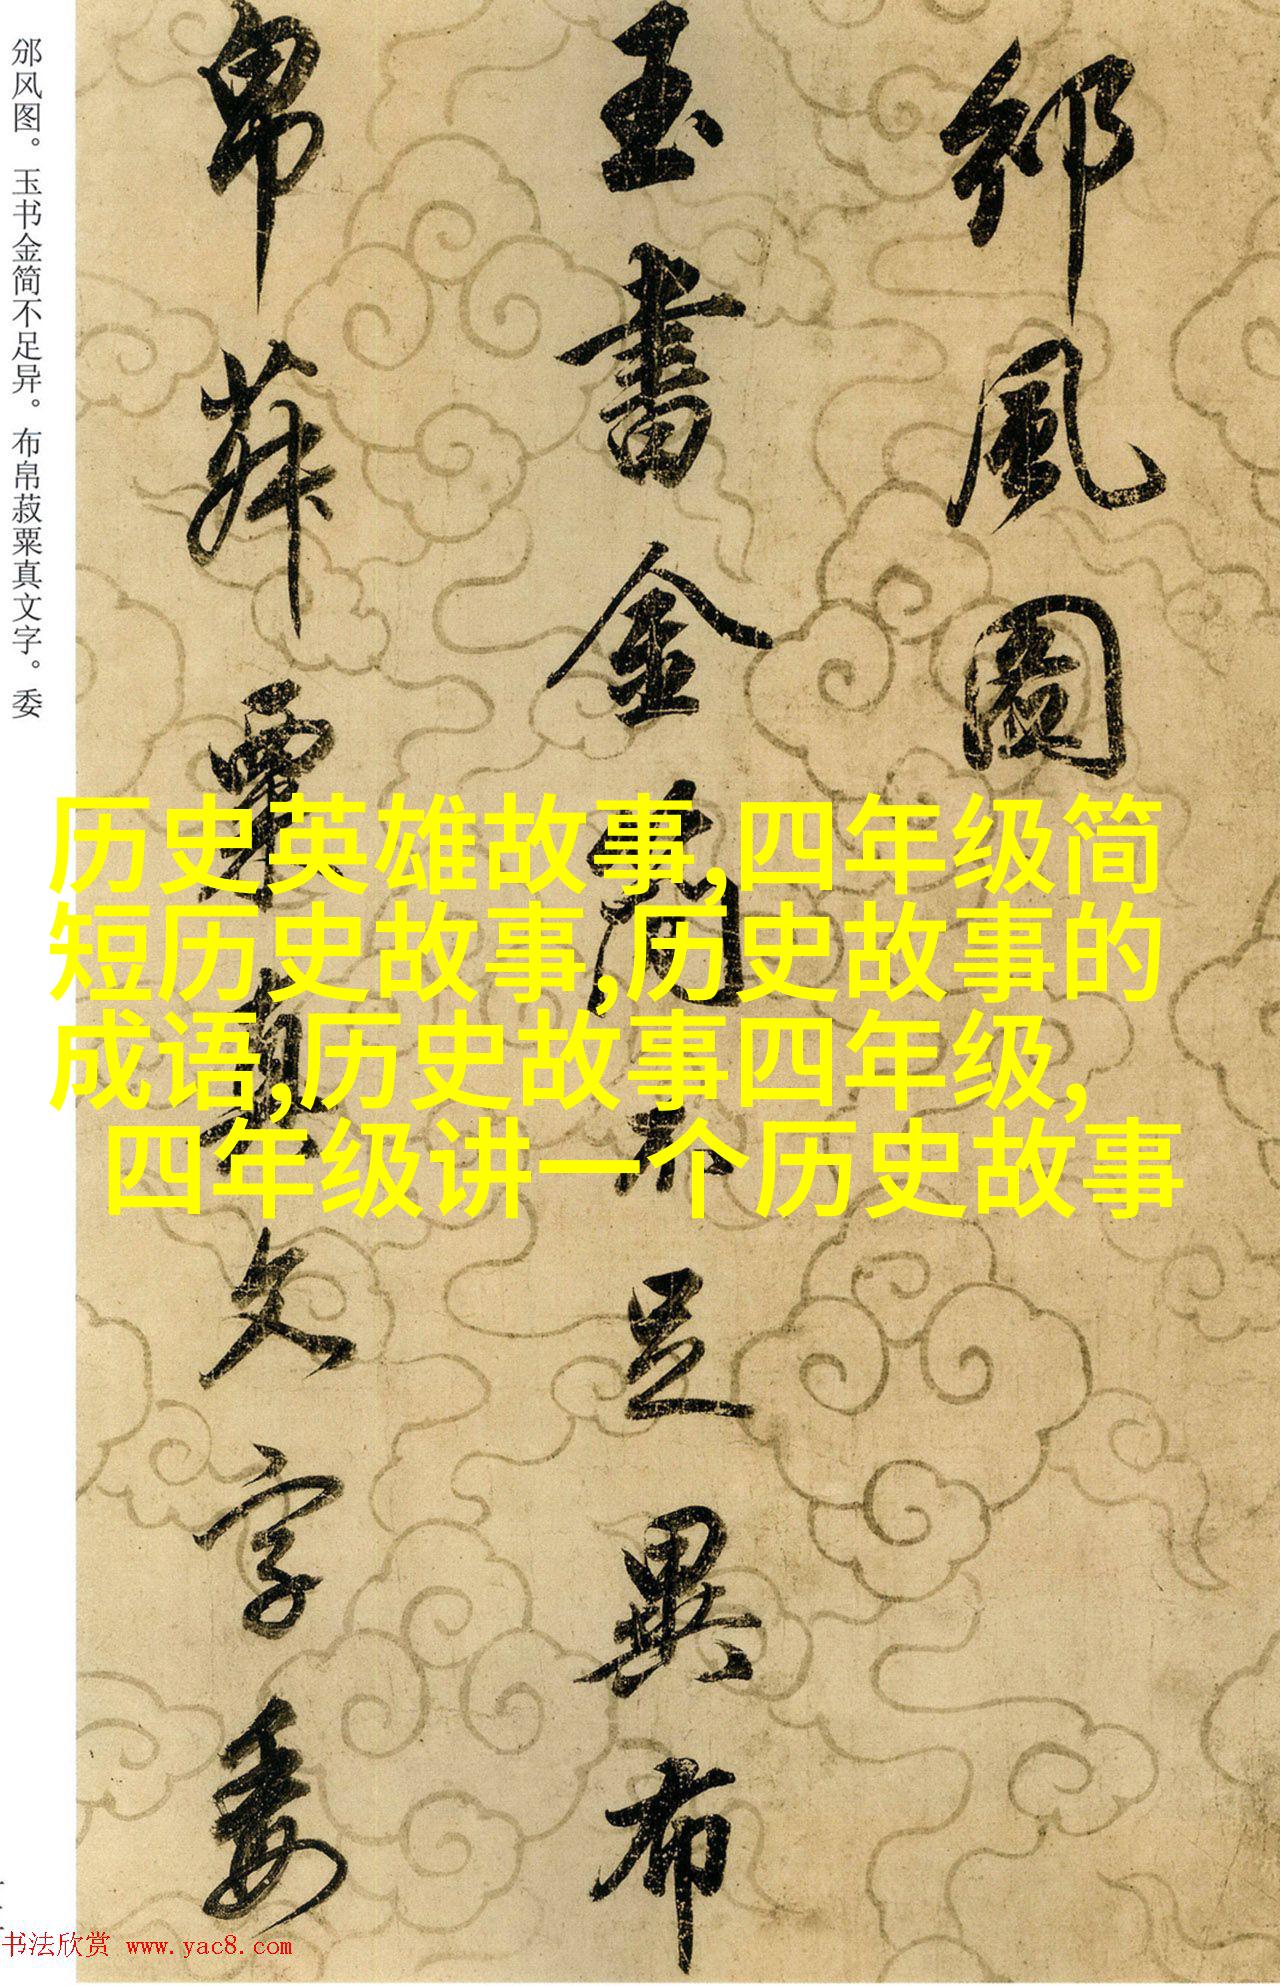 邠风图。玉书金简不足异。布帛菽粟真文字。委
邠風圖
玉書金簡不足異布
帛菽粟真文字委
历史英雄故事,四年级简
短历史故事,历史故事的
成语,历史故事四年级,
四年级讲一个历史故事
书法欣赏 www.yac8.com